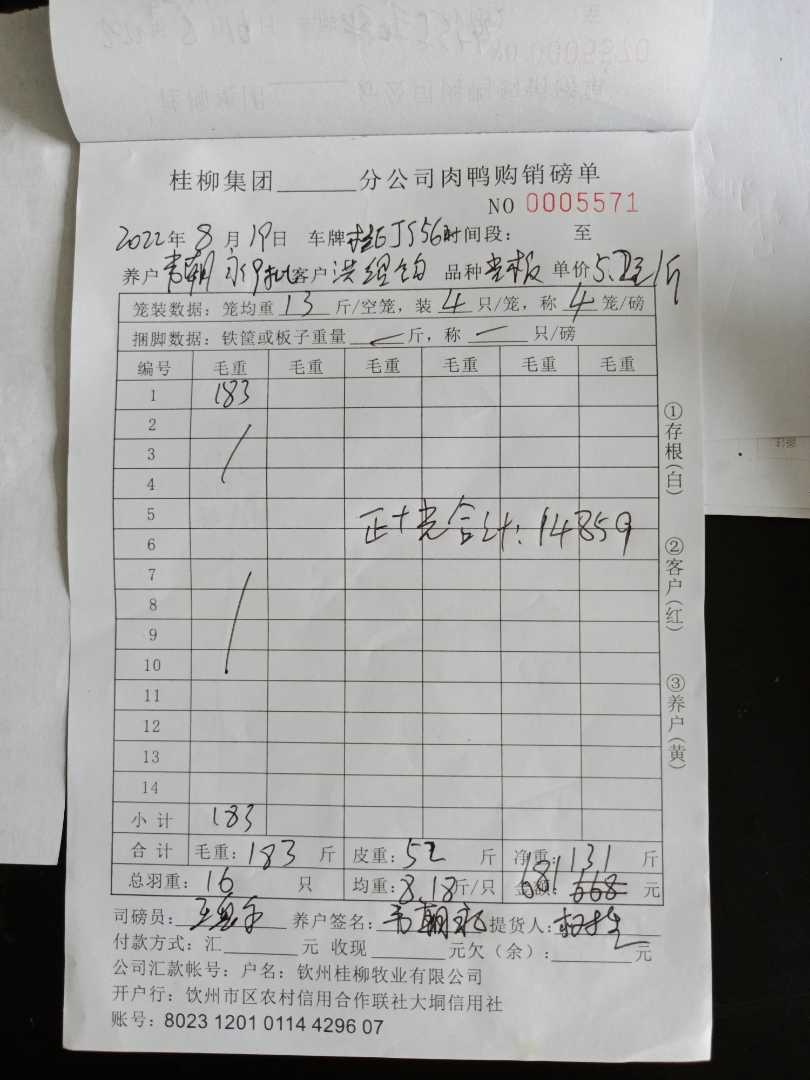 桂柳集团______分公司肉鸭购销磅单
NO 0005571
2022年 8 月 19日 车牌 桂EJS56 时间段: 至
养户 韦朝 永 客户 洪 品种 单价 5. /斤
笼装数据: 笼均重 13 斤/空笼, 装 4 只/笼, 称 4 笼/磅
捆脚数据: 铁筐或板子重量 — 斤, 称 — 只/磅
编号 毛重 毛重 毛重 毛重 毛重 毛重
1 183
2
3
4
5
正+光合计: 14859
6
7
8
9
10
11
12
13
14
小计 183
合计 毛重: 183 斤 皮重: 52 斤 净重: 131 斤
总羽重: 16 只 均重: 8.18 斤/只 金额: 681 668 元
司磅员: 王 养户签名: 韦朝永 提货人:
付款方式: 汇______元 收现______元欠(余): ______元
公司汇款帐号: 户名: 钦州桂柳牧业有限公司
开户行: 钦州市区农村信用合作联社大垌信用社
账号: 8023 1201 0114 4296 07
①存根(白)
②客户(红)
③养户(黄)